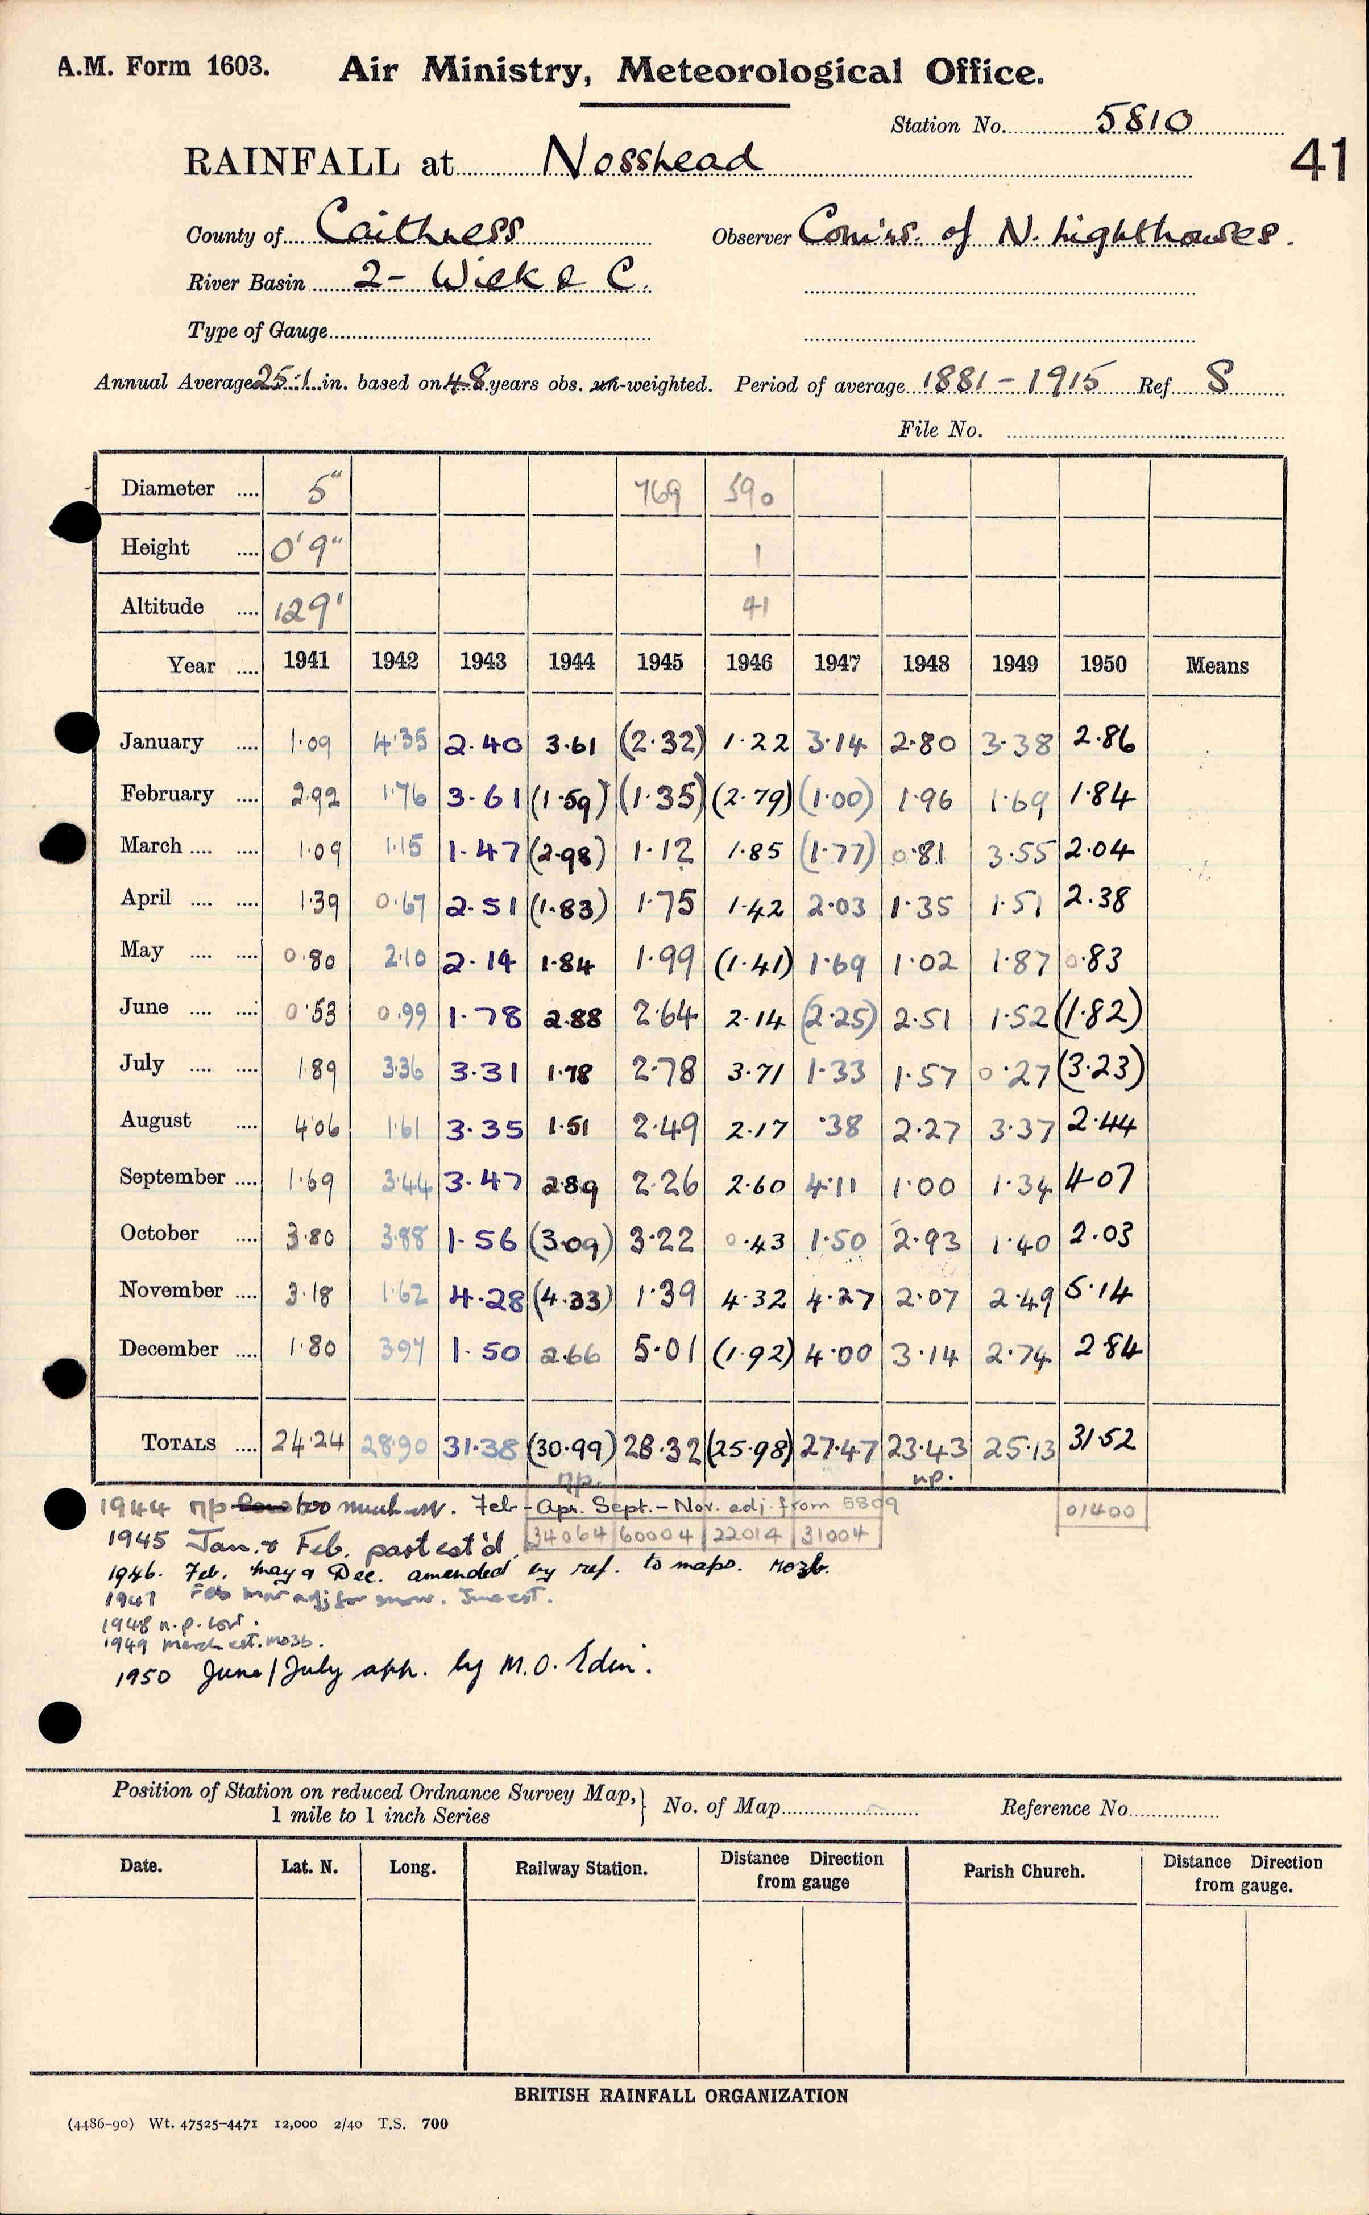 A.M. Form 1603. Air Ministry, Meteorological Office.
Station No. 5810
41
RAINFALL at Nosshead
County of Caithness Observer Comirs. of N. Lighthouses.
River Basin 2 - Wick & C.
Type of Gauge
Annual Average 25.1 in. based on 48 years obs. un-weighted. Period of average 1881 - 1915 Ref. S
File No.
Diameter .... 5" 769 590
Height .... 0'9" 1
Altitude .... 129' 41
Year .... 1941 1942 1943 1944 1945 1946 1947 1948 1949 1950 Means
January .... 1.09 4.35 2.40 3.61 (2.32) 1.22 3.14 2.80 3.38 2.86
February .... 2.92 1.76 3.61 (1.59) (1.35) (2.79) (1.00) 1.96 1.69 1.84
March .... .... 1.09 1.15 1.47 (2.98) 1.12 1.85 (1.77) 0.81 3.55 2.04
April .... .... 1.39 0.67 2.51 (1.83) 1.75 1.42 2.03 1.35 1.51 2.38
May .... .... 0.80 2.10 2.14 1.84 1.99 (1.41) 1.69 1.02 1.87 0.83
June .... .... 0.53 0.99 1.78 2.88 2.64 2.14 (2.25) 2.51 1.52 (1.82)
July .... .... 1.89 3.36 3.31 1.78 2.78 3.71 1.33 1.57 0.27 (3.23)
August .... 4.06 1.61 3.35 1.51 2.49 2.17 .38 2.27 3.37 2.44
September .... 1.69 3.44 3.47 2.89 2.26 2.60 4.11 1.00 1.34 4.07
October .... 3.80 3.88 1.56 (3.09) 3.22 0.43 1.50 2.93 1.40 2.03
November .... 3.18 1.62 4.28 (4.33) 1.39 4.32 4.27 2.07 2.49 5.14
December .... 1.80 3.97 1.50 2.66 5.01 (1.92) 4.00 3.14 2.74 2.84
TOTALS .... 24.24 28.90 31.38 (30.99) 28.32 (25.98) 27.47 23.43 25.13 31.52
np. np.
1944 np too much Feb - Apr. Sept. - Nov. adj. from 5809 01400
34064 60004 22014 31004
1945 Jan. & Feb. part est'd.
1946. Feb. May & Dec. amended by ref. to maps. MO3b.
1947 Feb Mar adj for snow. June est.
1948 n.p. low.
1949 March est. MO3b.
1950 June/July app. by M.O. Edin.
Position of Station on reduced Ordnance Survey Map,
1 mile to 1 inch Series } No. of Map Reference No.
Date. Lat. N. Long. Railway Station. Distance Direction from gauge Parish Church. Distance Direction from gauge.
BRITISH RAINFALL ORGANIZATION
(4486-90) Wt. 47525-4471 12,000 2/40 T.S. 700